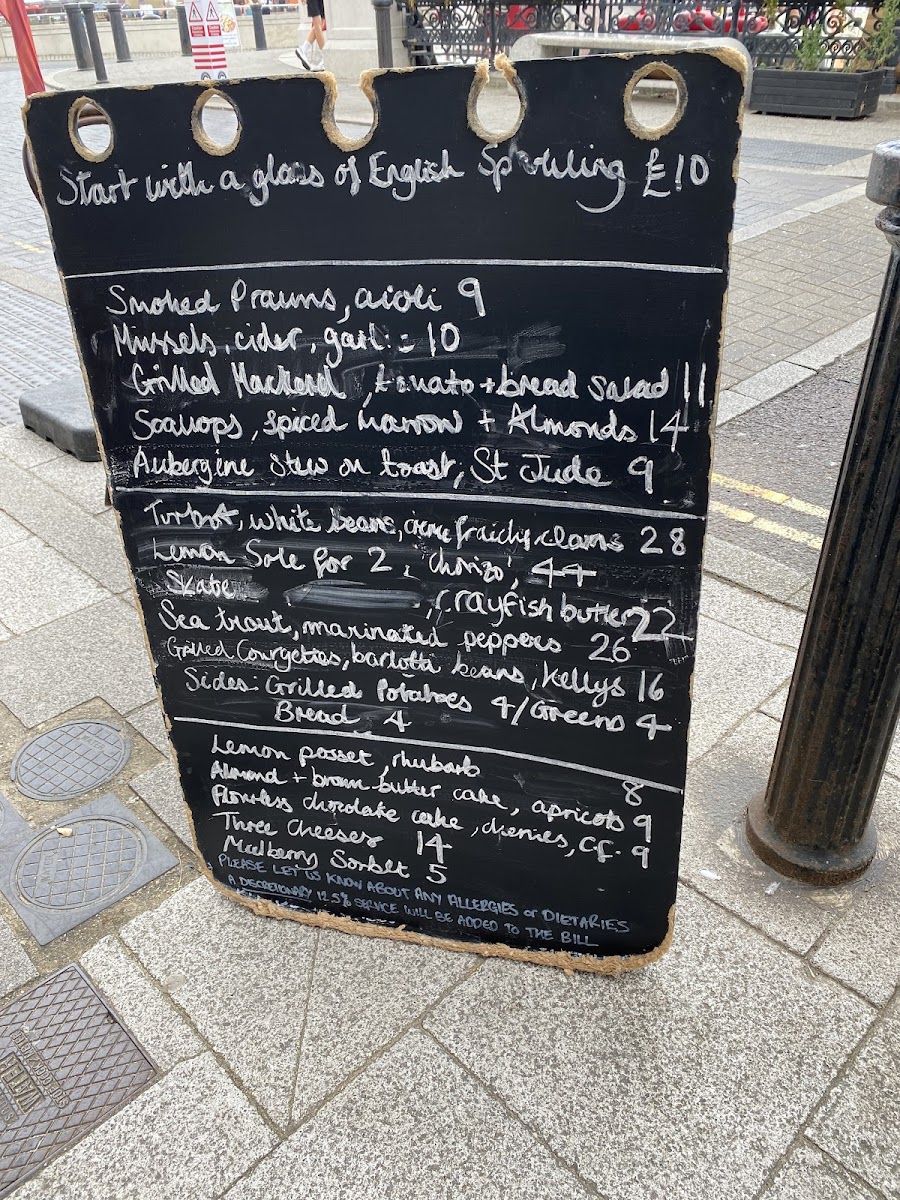 Start with a glass of English Sparkling £10
Smoked Prawns, aioli 9
Mussels, cider, garlic 10
Grilled Mackerel, tomato + bread salad 11
Scallops, spiced marrow + Almonds 14
Aubergine Stew on toast, St Jude 9
Turbot, white beans, crème fraiche, clams 28
Lemon Sole for 2, 'chorizo', 44
Skate, crayfish butter 22
Sea trout, marinated peppers 26
Grilled Courgettes, borlotti beans, Kellys 16
Sides: Grilled Potatoes 4/Greens 4
Bread 4
Lemon posset, rhubarb 8
Almond + brown butter cake, apricots 9
Flourless chocolate cake, cherries, C.F. 9
Three Cheeses 14
Mulberry Sorbet 5
PLEASE LET US KNOW ABOUT ANY ALLERGIES or DIETARIES
A DISCRETIONARY 12.5% SERVICE WILL BE ADDED TO THE BILL